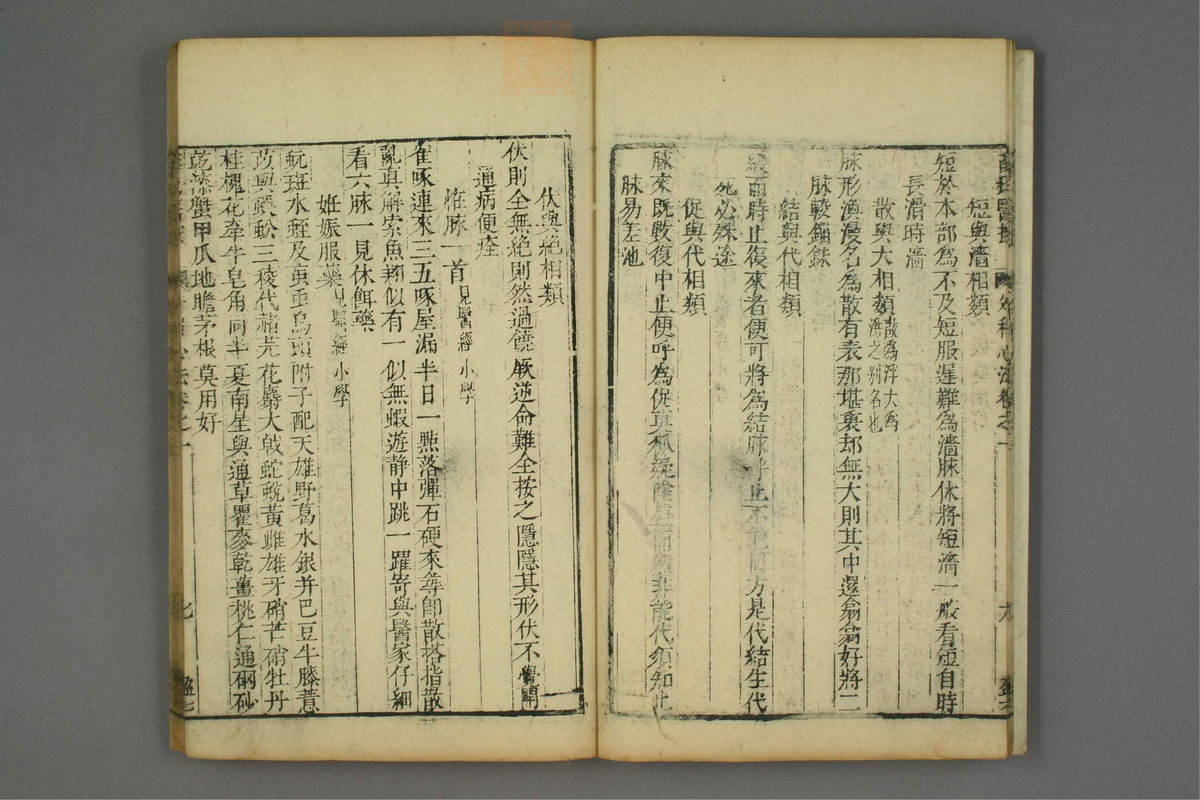 短與濇相類
短於本部為不及短服遲難為濇脉休將短濇一般看短自時
長濇時濇
散與大相類散為浮大為海之別名也
脉形渙漫名為散有表那堪裏却無大則其中還翕翕好將二
脉較錙銖
結與代相類
緩而時止復來者便可將為結脉呼止不 方是代結生代
死必殊途
促與代相類
脉來既數復中止便呼為促真 能代須知止
脉易差池
伏與絕相類
伏則全無絕則然過饒厥逆命難全按之隱隱其形伏不
通病便痊
恠脉一首見醫經小學
雀啄連來三五啄屋漏半日一㸃落彈石硬來尋即散搭指散
亂真解索魚翔似有一似無蝦遊静中跳一躍寄與醫家仔細
看六脉一見休餌藥
妊娠服藥見醫經小學
蚖斑水蛭及䖟虫烏頭附子配天雄野葛水銀并巴豆牛膝薏
苡與蜈蚣三稜代赭芫花麝大戟蛇蛻黃雌雄牙硝芒硝牡丹
桂槐花牽牛皂角同半夏南星與通草瞿麥乾薑桃仁通硇砂
乾漆蟹甲爪地膽茅根莫用好